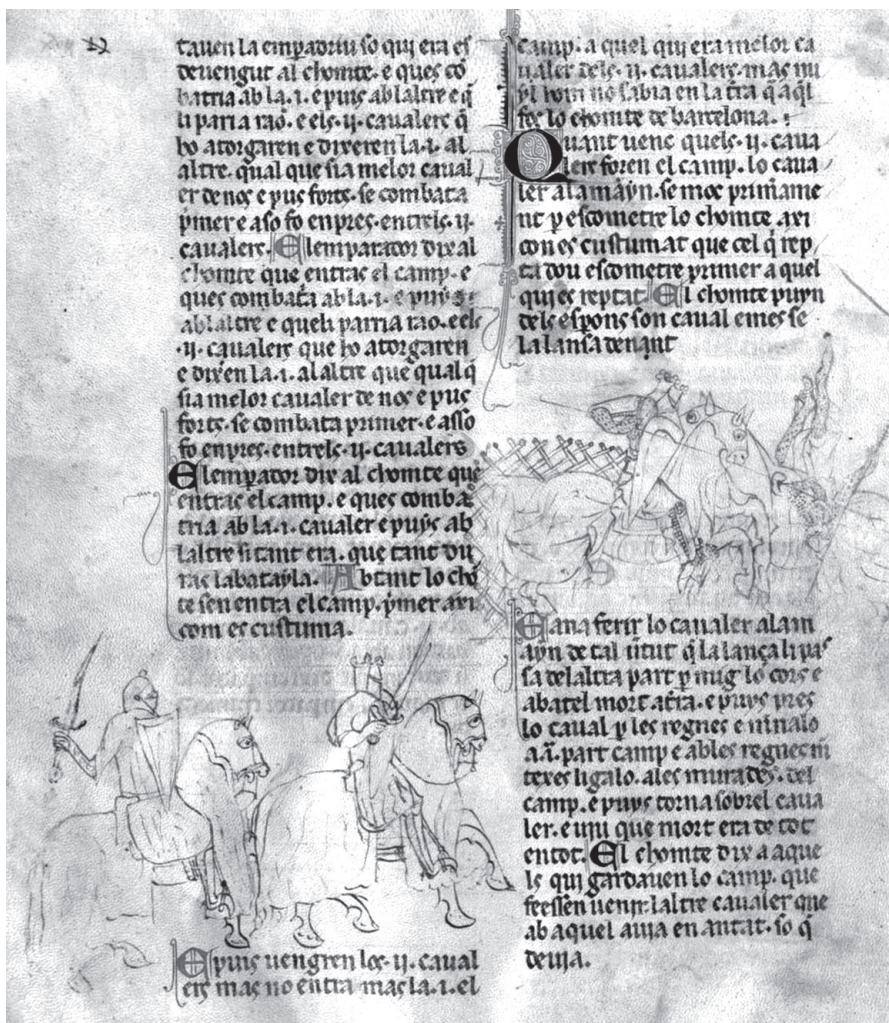 tauen la empadriu so qui era es
deuengut al chomte. e ques cō
batria ab la .i. e puis ab laltre e q̄
li parria rao. e els .ij. caualers q̄
ho atorgaren e dixeren la .i. al
altre. qual que sia melor caual
er de nos e pus forts. se combata
p̄mer e aso fo enpres. entrels .ij.
caualers. Elemparador dix al
chomte que entras el camp. e
ques combata ab la .i. e puys
ab laltre e queli parria rao. e els
.ij. caualers que ho atorgaren
e dixēn la .i. al altre que qual q̄
sia melor caualer de nos e pus
forts. se combata primer. e asso
fo enpres. entrels .ij. caualers
Elemp̄ador dix al chomte que
entras el camp. e ques comba
tria ab la .i. caualer e puys ab
laltre si tant era. que tant du
ras la batayla. Abtant lo chō
te sen entra el camp. p̄mer axi
com es custuma.
E puis uengren los .ij. caual
ers mas no entra mas la .i. el
camp. a quel qui era melor ca
ualer dels .ij. caualers. mas nu
yl hom no sabia en la t̄ra q̄ aq̄l
fos lo chomte de barcelona.
Quant uenc quels .ij. caua
lers foren el camp. lo caua
ler alamāyn. se moc primame
nt p̱ escometre lo chomte axi
con es custumat que cel q̄ rep
ta dou escometre primer a quel
qui es reptat. El chomte puyn
dels esp̱ons son caual e mes se
la lansa denant
E ana ferir lo caualer alam
ayn de tal ūtut q̄ la lança li pas
sa delaltra part p̱ mig lo cors e
abatel mort a t̄ra. e puys pres
lo caual p̱ les regnes e
a .ā. part camp e ab les regnes m
texes ligalo. a les murades. del
camp. e puys torna sobrel caua
ler. e uiu que mort era de tot
en tot. El chomte dix a aque
ls qui gardauen lo camp. que
feessen uenir laltre caualer que
ab aquel auia en antat. so q̄
deuia.